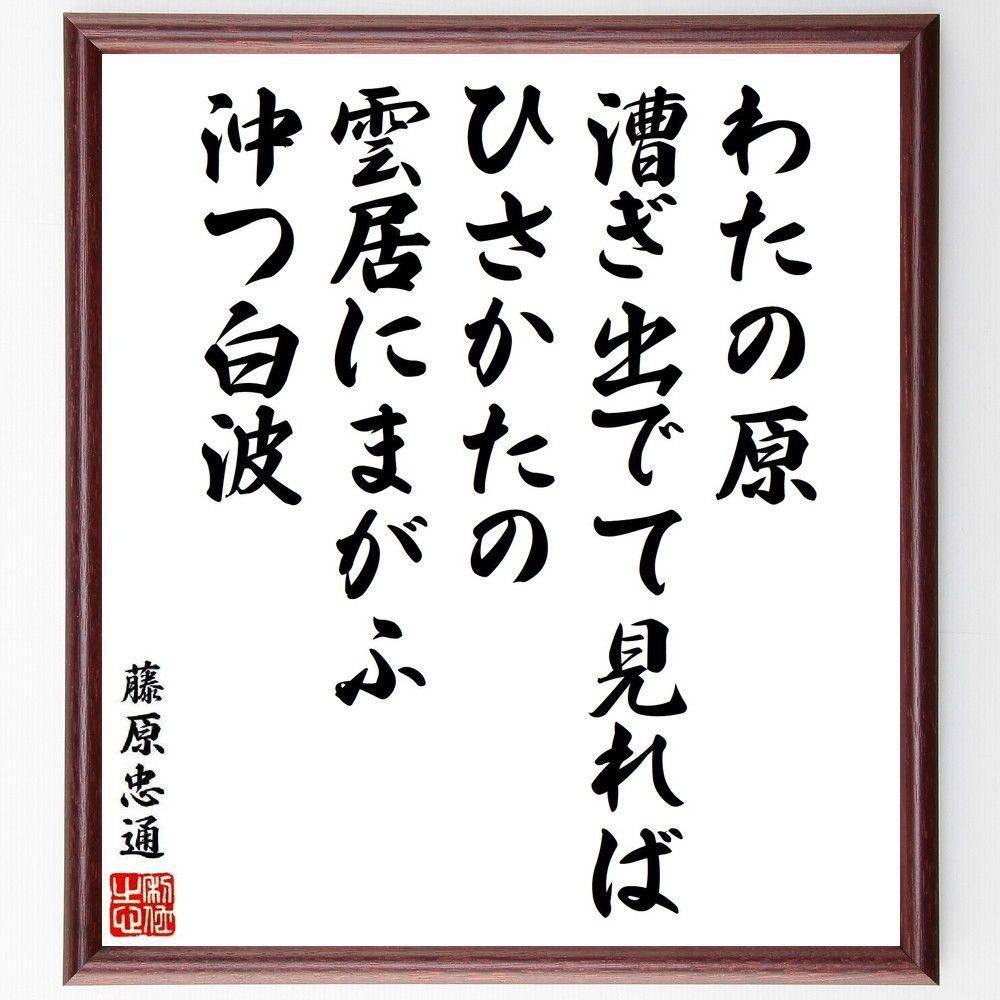 わたの原
漕ぎ出でて見れば
ひさかたの
雲居にまがふ
沖つ白波
藤原忠通